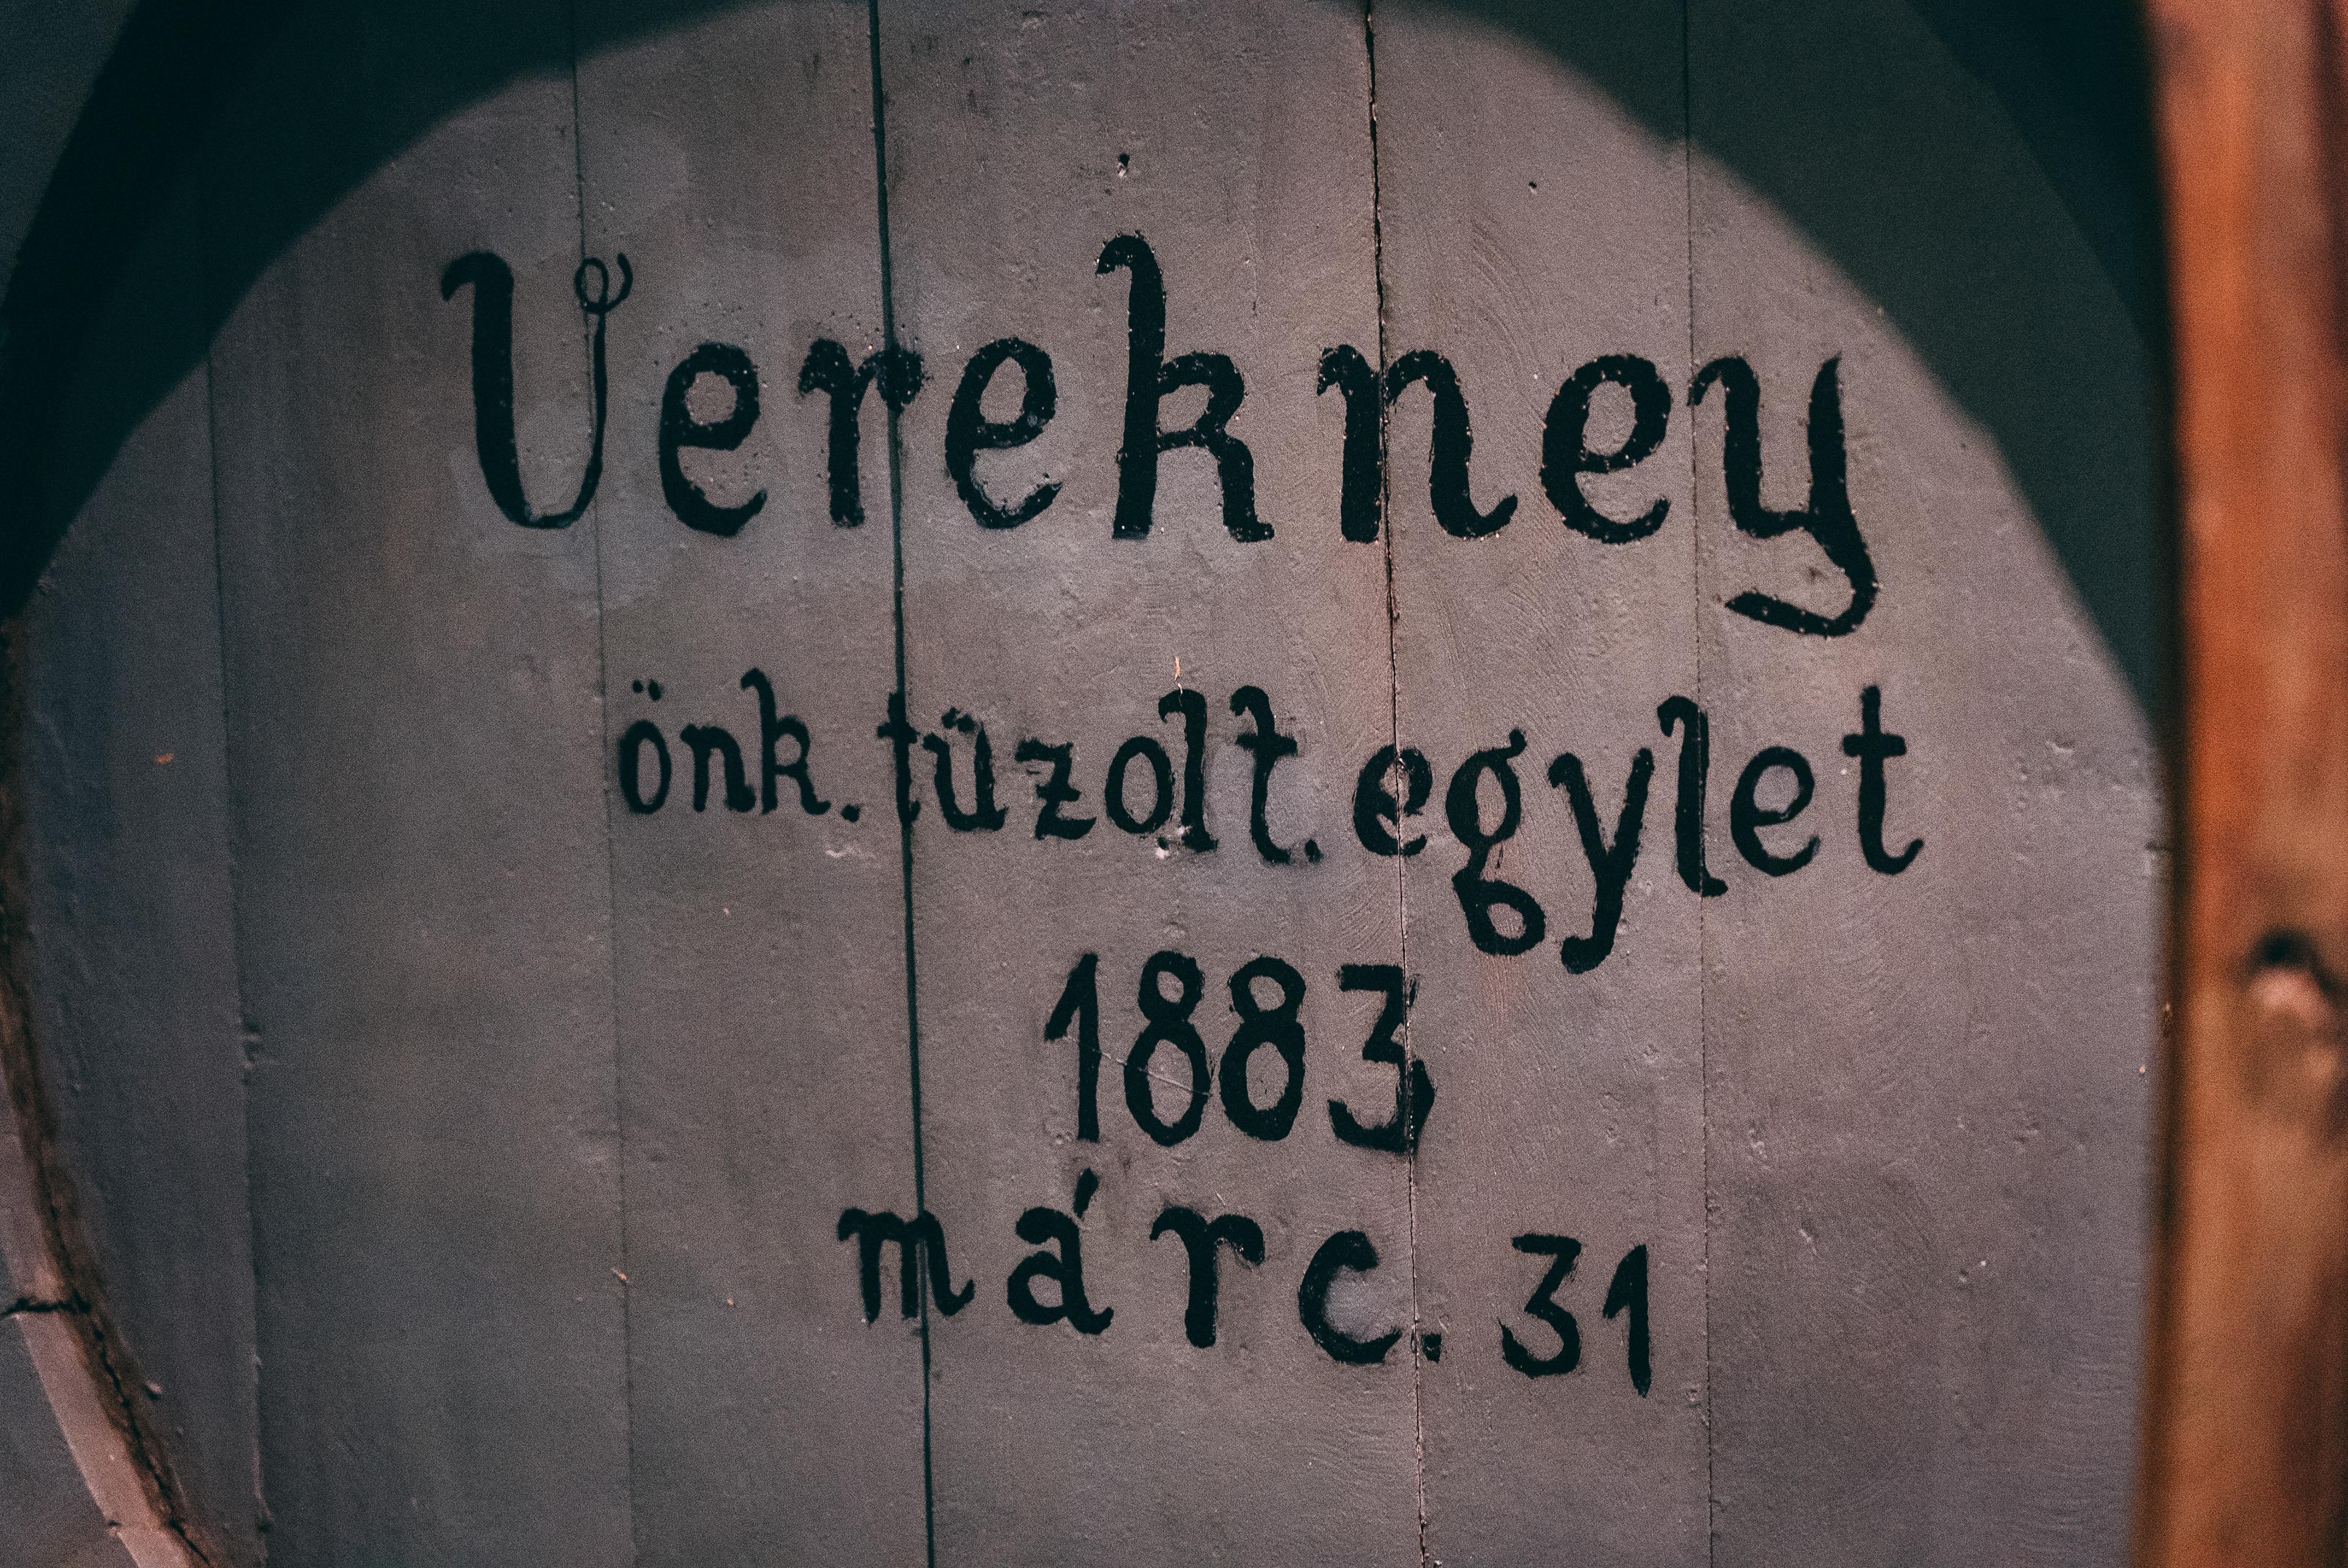 Verekney
önk. tüzolt. egylet
1883
márc. 31